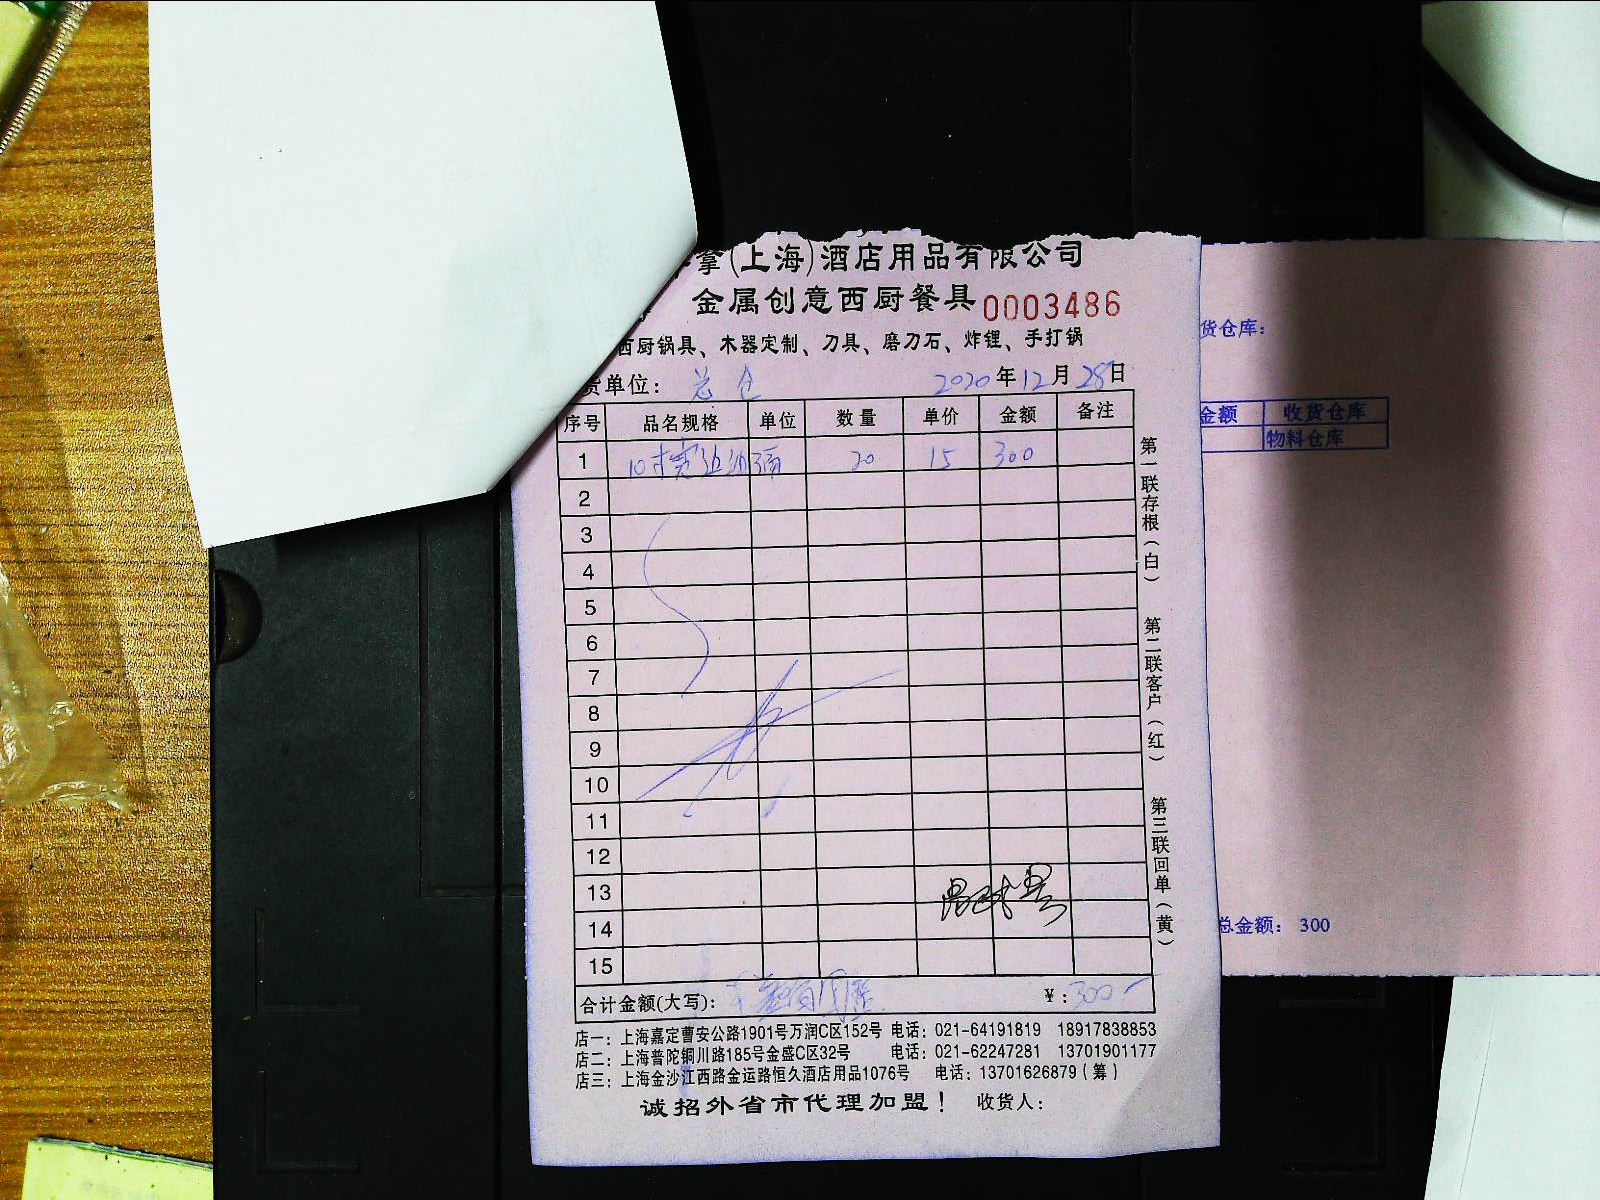 拿(上海)酒店用品有限公司
金属创意西厨餐具 0003486
西厨锅具、木器定制、刀具、磨刀石、炸锂、手打锅
货单位： 总仓 2020年12月28日
序号 品名规格 单位 数量 单价 金额 备注
1 10寸宽边 20 15 300
2
3
4
5
6
7
8
9
10
11
12
13
14
15
合计金额(大写)： ￥：300
店一：上海嘉定曹安公路1901号万润C区152号 电话：021-64191819 18917838853
店二：上海普陀铜川路185号金盛C区32号 电话：021-62247281 13701901177
店三：上海金沙江西路金运路恒久酒店用品1076号 电话：13701626879(筹)
诚招外省市代理加盟！ 收货人：
第一联存根(白)
第二联客户(红)
第三联回单(黄)
货仓库：
金额 收货仓库
物料仓库
总金额： 300